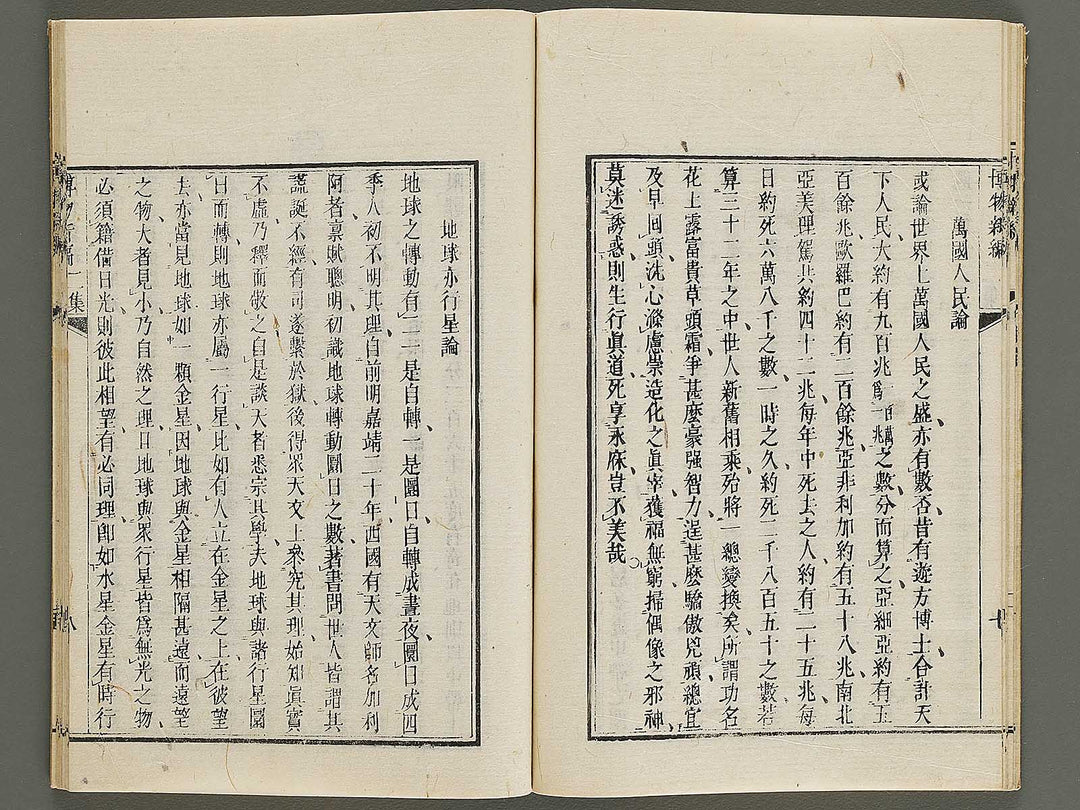 博物新編
萬國人民論
或論世界上萬國人民之盛亦有數否昔有遊方博士合計天
下人民大約有九百兆百萬為一兆之數分而算之亞細亞約有五
百餘兆歐羅巴約有二百餘兆亞非利加約有五十八兆南北
亞美理駕共約四十二兆每年中死去之人約有二十五兆每
日約死六萬八千之數一時之久約死二千八百五十之數若
算三十二年之中世人新舊相乘殆將一總變換矣所謂功名
花上露富貴草頭霜爭甚麼豪强智力逞甚麼驕傲兇頑總宜
及早回頭洗心滌慮崇造化之眞宰獲福無窮掃偶像之邪神
莫迷誘惑則生行眞道死享永庥豈不美哉
地球亦行星論
地球之轉動有二一是自轉一是圜日自轉成晝夜圜日成四
季人初不明其理自前明嘉靖二十年西國有天文師名加利
阿者禀賦聰明初識地球轉動圜日之數著書問世人皆謂其
謊誕不經有司遂繫於獄後得眾天文士衆究其理始知眞實
不虛乃釋而敬之自是談天者悉宗其學夫地球與諸行星圜
日而轉則地球亦屬一行星比如有人立在金星之上在彼望
去亦當見地球如一顆金星因地球與金星相隔甚遠而遠望
之物大者見小乃自然之理日地球與眾行星皆爲無光之物
必須籍借日光則彼此相望有必同理卽如水星金星有時行
博物新編一集
八